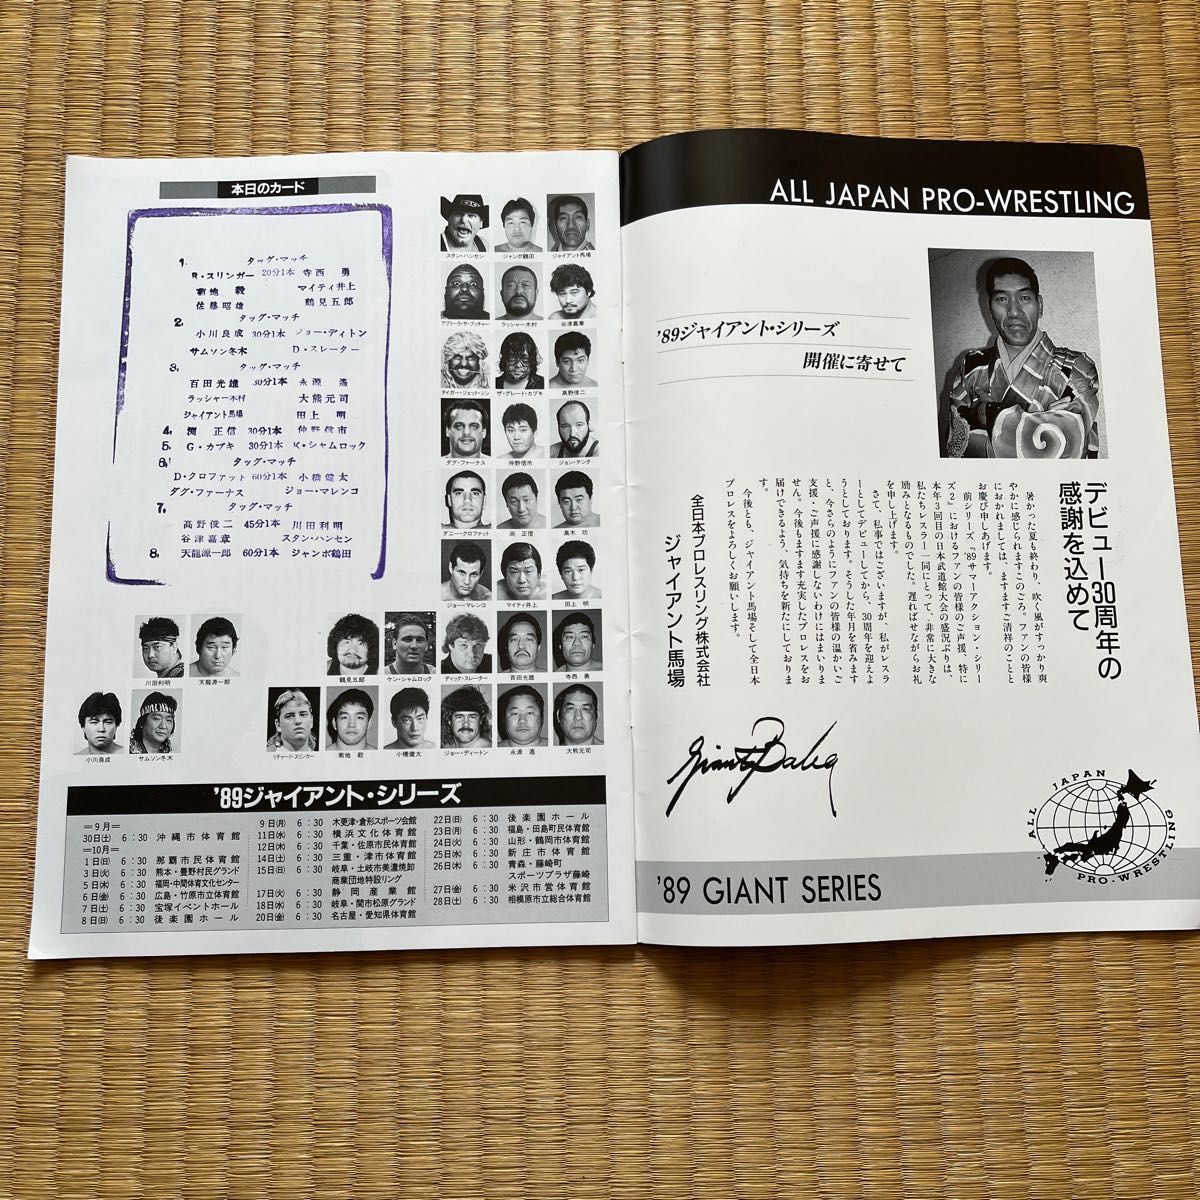 本日のカード
1. タッグ・マッチ
R・スリンガー 20分1本 寺西 勇
菊地 毅 マイティ井上
佐藤昭雄 鶴見五郎
2. タッグ・マッチ
小川良成 30分1本 ジョー・ディトン
サムソン冬木 D・スレーター
3. タッグ・マッチ
百田光雄 30分1本 永源 遙
ラッシャー木村 大熊元司
ジャイアント馬場 田上 明
4. 渕 正信 30分1本 仲野信市
5. G・カブキ 30分1本 K・シャムロック
6. タッグ・マッチ
D・クロファット 60分1本 小橋健太
ダグ・ファーナス ジョー・マレンコ
7. タッグ・マッチ
高野俊二 45分1本 川田利明
谷津嘉章 スタン・ハンセン
8. 天龍源一郎 60分1本 ジャンボ鶴田
スタン・ハンセン ジャンボ鶴田 ジャイアント馬場
アブドーラ・ザ・ブッチャー ラッシャー木村 谷津嘉章
タイガー・ジェット・シン ザ・グレート・カブキ 高野俊二
ダグ・ファーナス 仲野信市 ジョン・テンタ
ダニー・クロファット 渕 正信 高木 功
ジョー・マレンコ マイティ井上 田上 明
川田利明 天龍源一郎 鶴見五郎 ケン・シャムロック ディック・スレーター 百田光雄 寺西 勇
小川良成 サムソン冬木 リチャード・スリンガー 菊地 毅 小橋健太 ジョー・ディートン 永源 遙 大熊元司
'89ジャイアント・シリーズ
＝9月＝
30日(土) 6:30 沖縄市体育館
＝10月＝
1日(日) 6:30 那覇市民体育館
3日(火) 6:30 熊本・豊野村民グランド
5日(木) 6:30 福岡・中間体育文化センター
6日(金) 6:30 広島・竹原市立体育館
7日(土) 6:30 宝塚イベントホール
8日(日) 6:30 後楽園ホール
9日(月) 6:30 木更津・倉形スポーツ会館
11日(水) 6:30 横浜文化体育館
12日(木) 6:30 千葉・佐原市民体育館
14日(土) 6:30 三重・津市体育館
15日(日) 6:30 岐阜・土岐市美濃焼卸
商業団地特設リング
17日(火) 6:30 静岡産業館
18日(水) 6:30 岐阜・関市松原グランド
20日(金) 6:30 名古屋・愛知県体育館
22日(日) 6:30 後楽園ホール
23日(月) 6:30 福島・田島町民体育館
24日(火) 6:30 山形・鶴岡市体育館
25日(水) 6:30 新庄市体育館
26日(木) 6:30 青森・藤崎町
スポーツプラザ藤崎
27日(金) 6:30 米沢市営体育館
28日(土) 6:30 相模原市立総合体育館
ALL JAPAN PRO-WRESTLING
'89ジャイアント・シリーズ
開催に寄せて
デビュー30周年の
感謝を込めて
暑かった夏も終わり、吹く風がすっかり爽
やかに感じられますこのごろ。ファンの皆様
におかれましては、ますますご清祥のことと
お慶び申しあげます。
前シリーズ『'89サマーアクション・シリー
ズ2』におけるファンの皆様のご声援、特に
本年3回目の日本武道館大会の盛況ぶりは、
私たちレスラー一同にとって、非常に大きな
励みとなるものでした。遅ればせながらお礼
を申し上げます。
さて、私事ではございますが、私がレスラ
ーとしてデビューしてから、30周年を迎えよ
うとしております。そうした年月を省みます
と、今さらのようにファンの皆様の温かいご
支援・ご声援に感謝しないわけにはまいりま
せん。今後もますます充実したプロレスをお
届けできるよう、気持ちを新たにしておりま
す。
今後とも、ジャイアント馬場そして全日本
プロレスをよろしくお願いします。
全日本プロレスリング株式会社
ジャイアント馬場
Giant Baba
ALL JAPAN PRO-WRESTLING
'89 GIANT SERIES